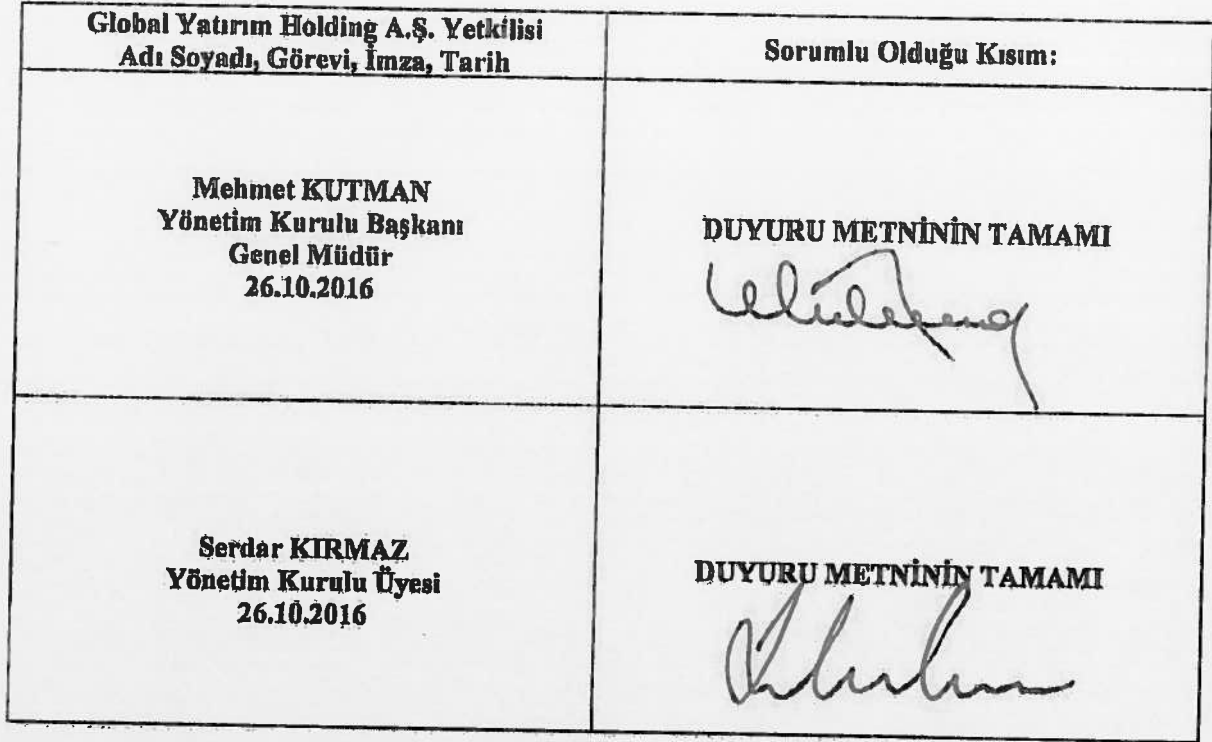 Global Yatırım Holding A.Ş. Yetkilisi
Adı Soyadı, Görevi, İmza, Tarih
Sorumlu Olduğu Kısım:
Mehmet KUTMAN
Yönetim Kurulu Başkanı
Genel Müdür
26.10.2016
DUYURU METNİNİN TAMAMI
Serdar KIRMAZ
Yönetim Kurulu Üyesi
26.10.2016
DUYURU METNİNİN TAMAMI